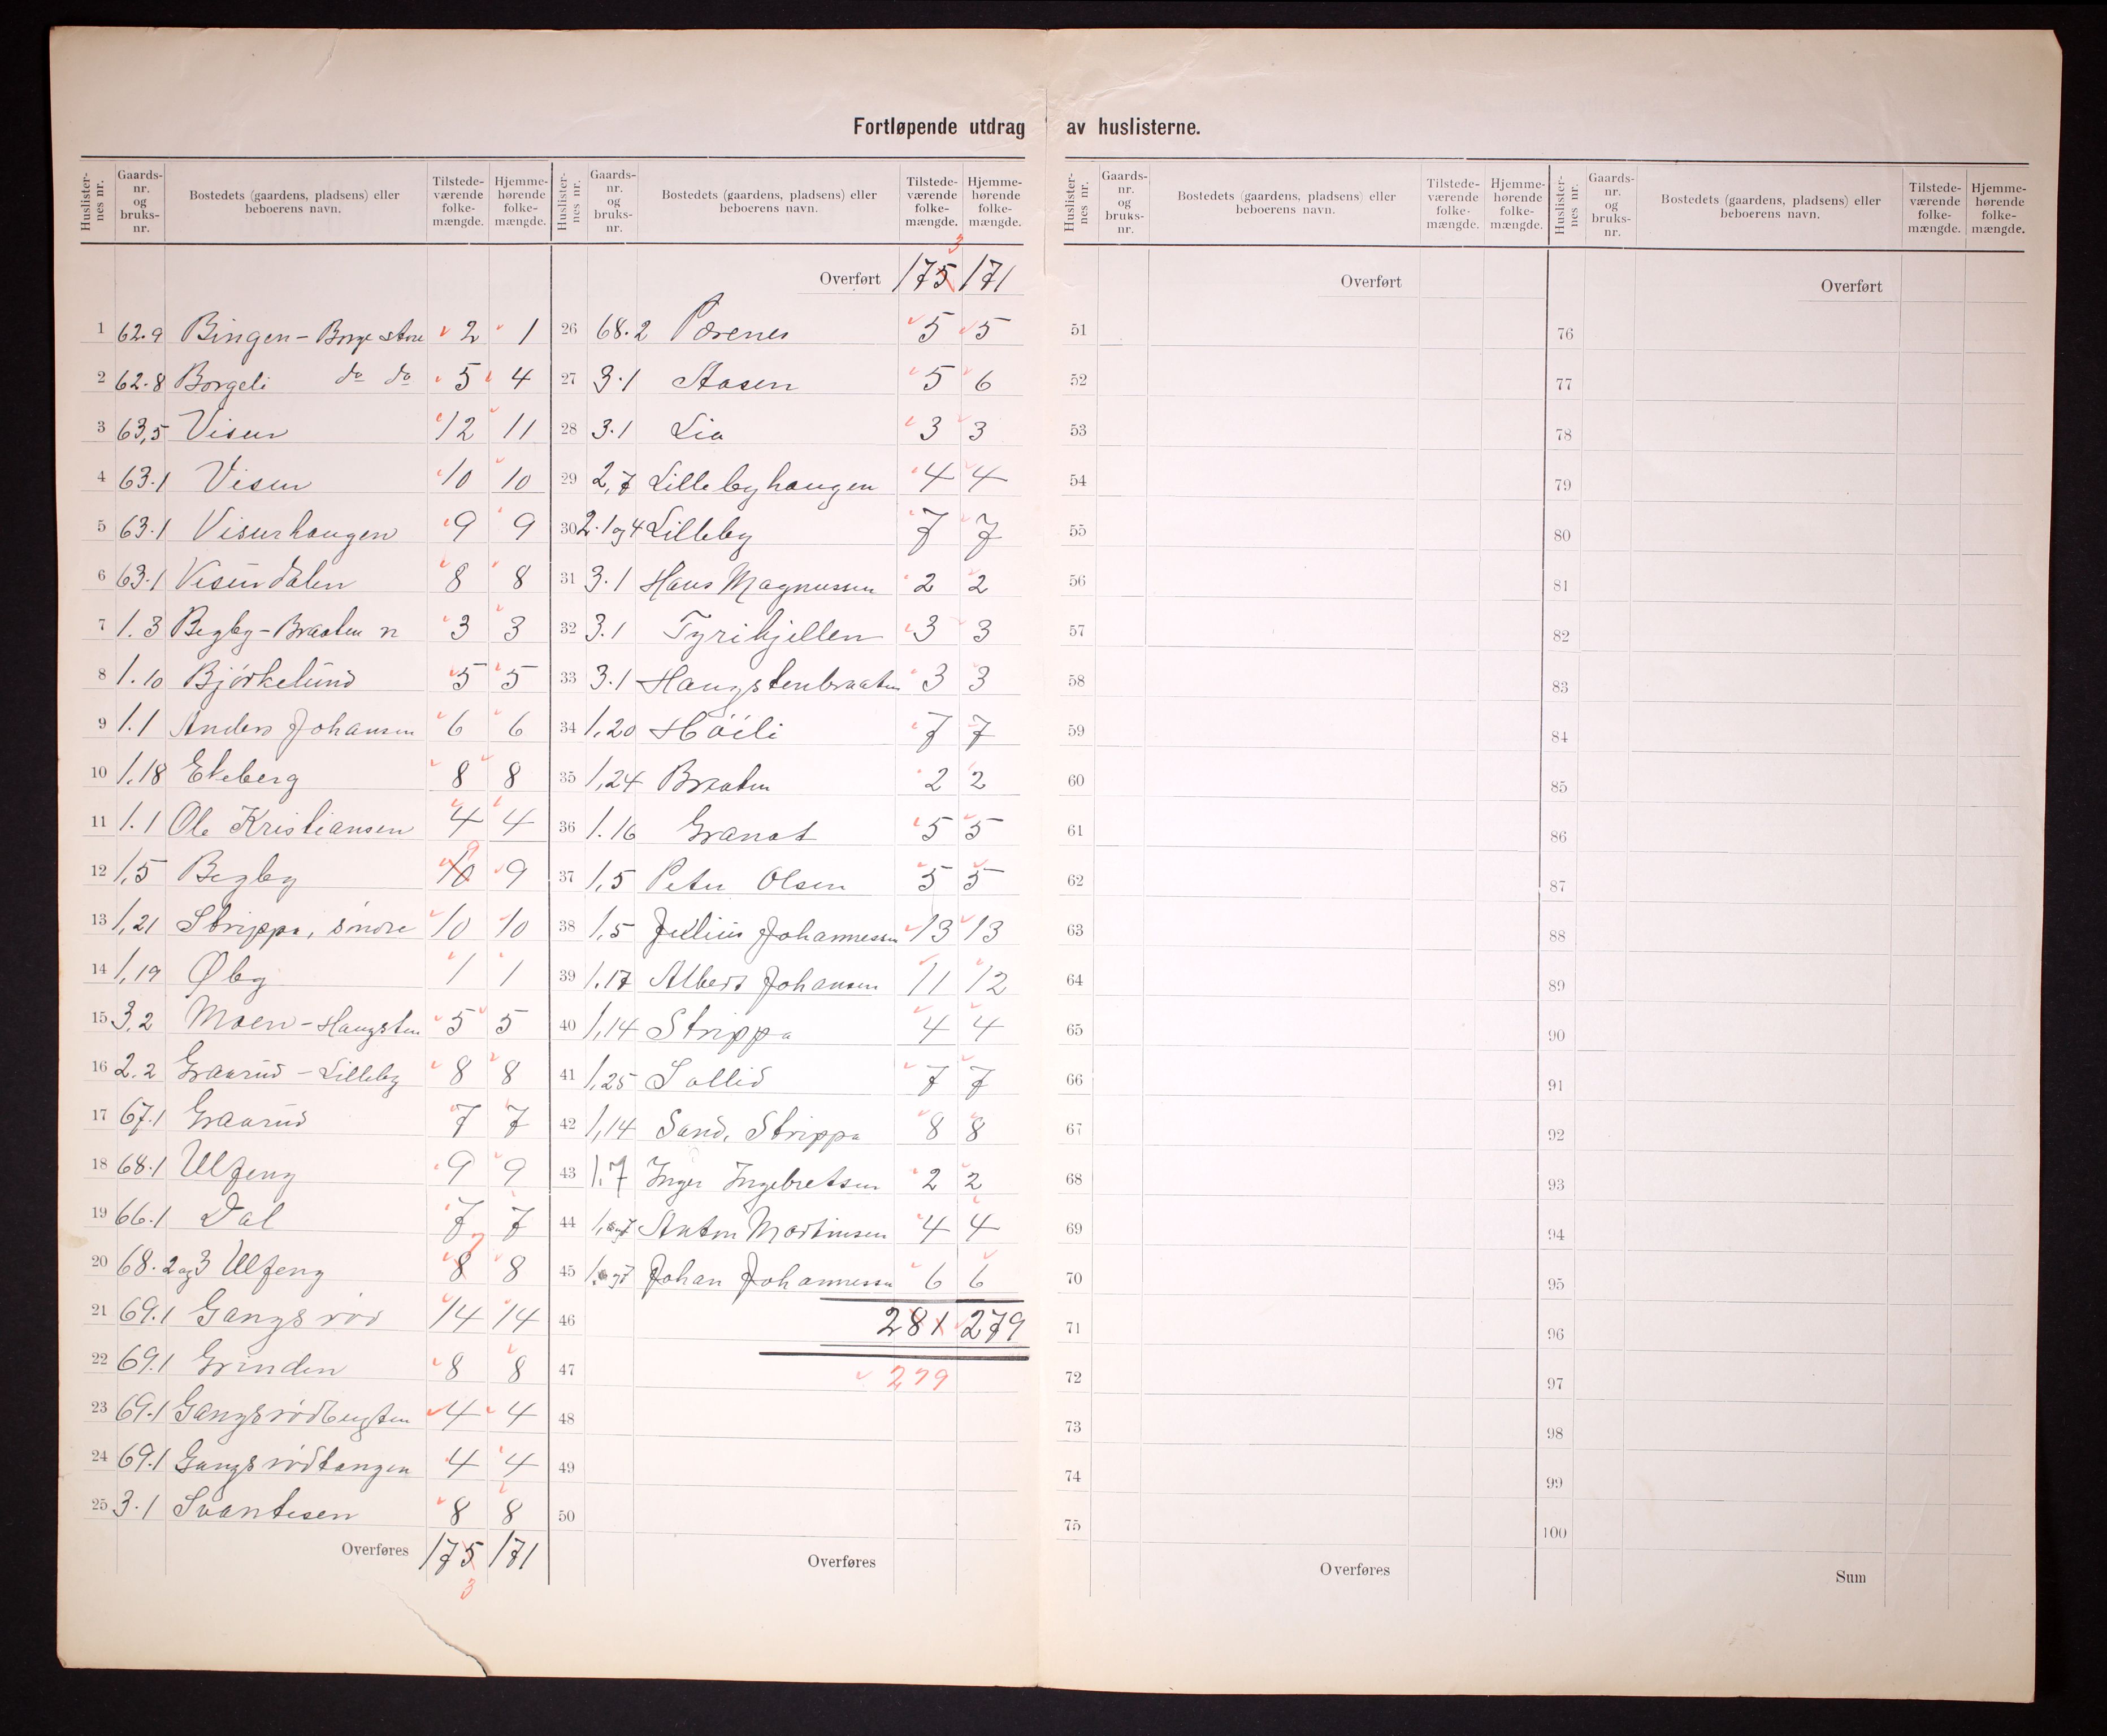 Fortløpende utdrag av huslisterne.
Huslister-nes nr. Gaards-nr. og bruks-nr. Bostedets (gaardens, pladsens) eller beboerens navn. Tilstede-værende folke-mængde. Hjemme-hørende folke-mængde.
1 62.9 Bingen - Borge store 2 1
2 62.8 Borgeli do do 5 4
3 63,5 Visur 12 11
4 63.1 Visur 10 10
5 63.1 Visurhaugen 9 9
6 63.1 Visurdalen 8 8
7 1.3 Begby - Braaten n 3 3
8 1.10 Bjørkelund 5 5
9 1.1 Anders Johansen 6 6
10 1.18 Ekeberg 8 8
11 1.1 Ole Kristiansen 4 4
12 1,5 Begby 10 9 9
13 1,21 Strippa, søndre 10 10
14 1,19 Øby 1 1
15 3,2 Moen - Haugsten 5 5
16 2.2 Graarud - Lilleby 8 8
17 67.1 Graarud 7 7
18 68.1 Ulfeng 9 9
19 66.1 Dal 7 7
20 68.2 og 3 Ulfeng 8 7 8
21 69.1 Gangsrød 14 14
22 69.1 Grinden 8 8
23 69.1 Gangsrødbugten 4 4
24 69.1 Gangsrødtangen 4 4
25 3.1 Svantesen 8 8
Overføres 175 171
3
Huslister-nes nr. Gaards-nr. og bruks-nr. Bostedets (gaardens, pladsens) eller beboerens navn. Tilstede-værende folke-mængde. Hjemme-hørende folke-mængde.
3
Overført 175 171
26 68.2 Pærenes 5 5
27 3.1 Aasen 5 6
28 3.1 Lia 3 3
29 2,7 Lillebyhaugen 4 4
30 2.1 og 4 Lilleby 7 7
31 3.1 Hans Magnussen 2 2
32 3.1 Tyrihjellen 3 3
33 3.1 Haugstenbraaten 3 3
34 1,20 Høili 7 7
35 1,24 Braaten 2 2
36 1.16 Granat 5 5
37 1,5 Peter Olsen 5 5
38 1,5 Julius Johannessen 13 13
39 1.17 Albert Johansen 11 12
40 1,14 Strippa 4 4
41 1,25 Sollid 7 7
42 1,14 Sand, Strippa 8 8
43 1.7 Inger Ingebretsen 2 2
44 Anton Martinsen 4 4
45 Johan Johannessen 6 6
46 281 279
47 279
48
49
50
Overføres
Huslister-nes nr. Gaards-nr. og bruks-nr. Bostedets (gaardens, pladsens) eller beboerens navn. Tilstede-værende folke-mængde. Hjemme-hørende folke-mængde.
Overført
51
52
53
54
55
56
57
58
59
60
61
62
63
64
65
66
67
68
69
70
71
72
73
74
75
Overføres
Huslister-nes nr. Gaards-nr. og bruks-nr. Bostedets (gaardens, pladsens) eller beboerens navn. Tilstede-værende folke-mængde. Hjemme-hørende folke-mængde.
Overført
76
77
78
79
80
81
82
83
84
85
86
87
88
89
90
91
92
93
94
95
96
97
98
99
100
Sum